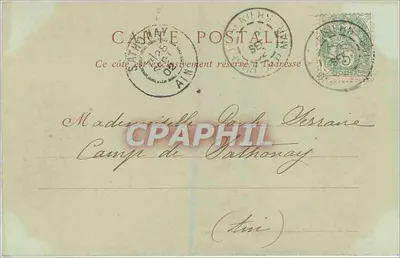 CARTE POSTALE
Ce côté est exclusivement réservé à l'adresse
SATHONAY
02
AIN
Mademoiselle Paule Serrane
Camp de Sathonay
(Ain)
CPAPHIL